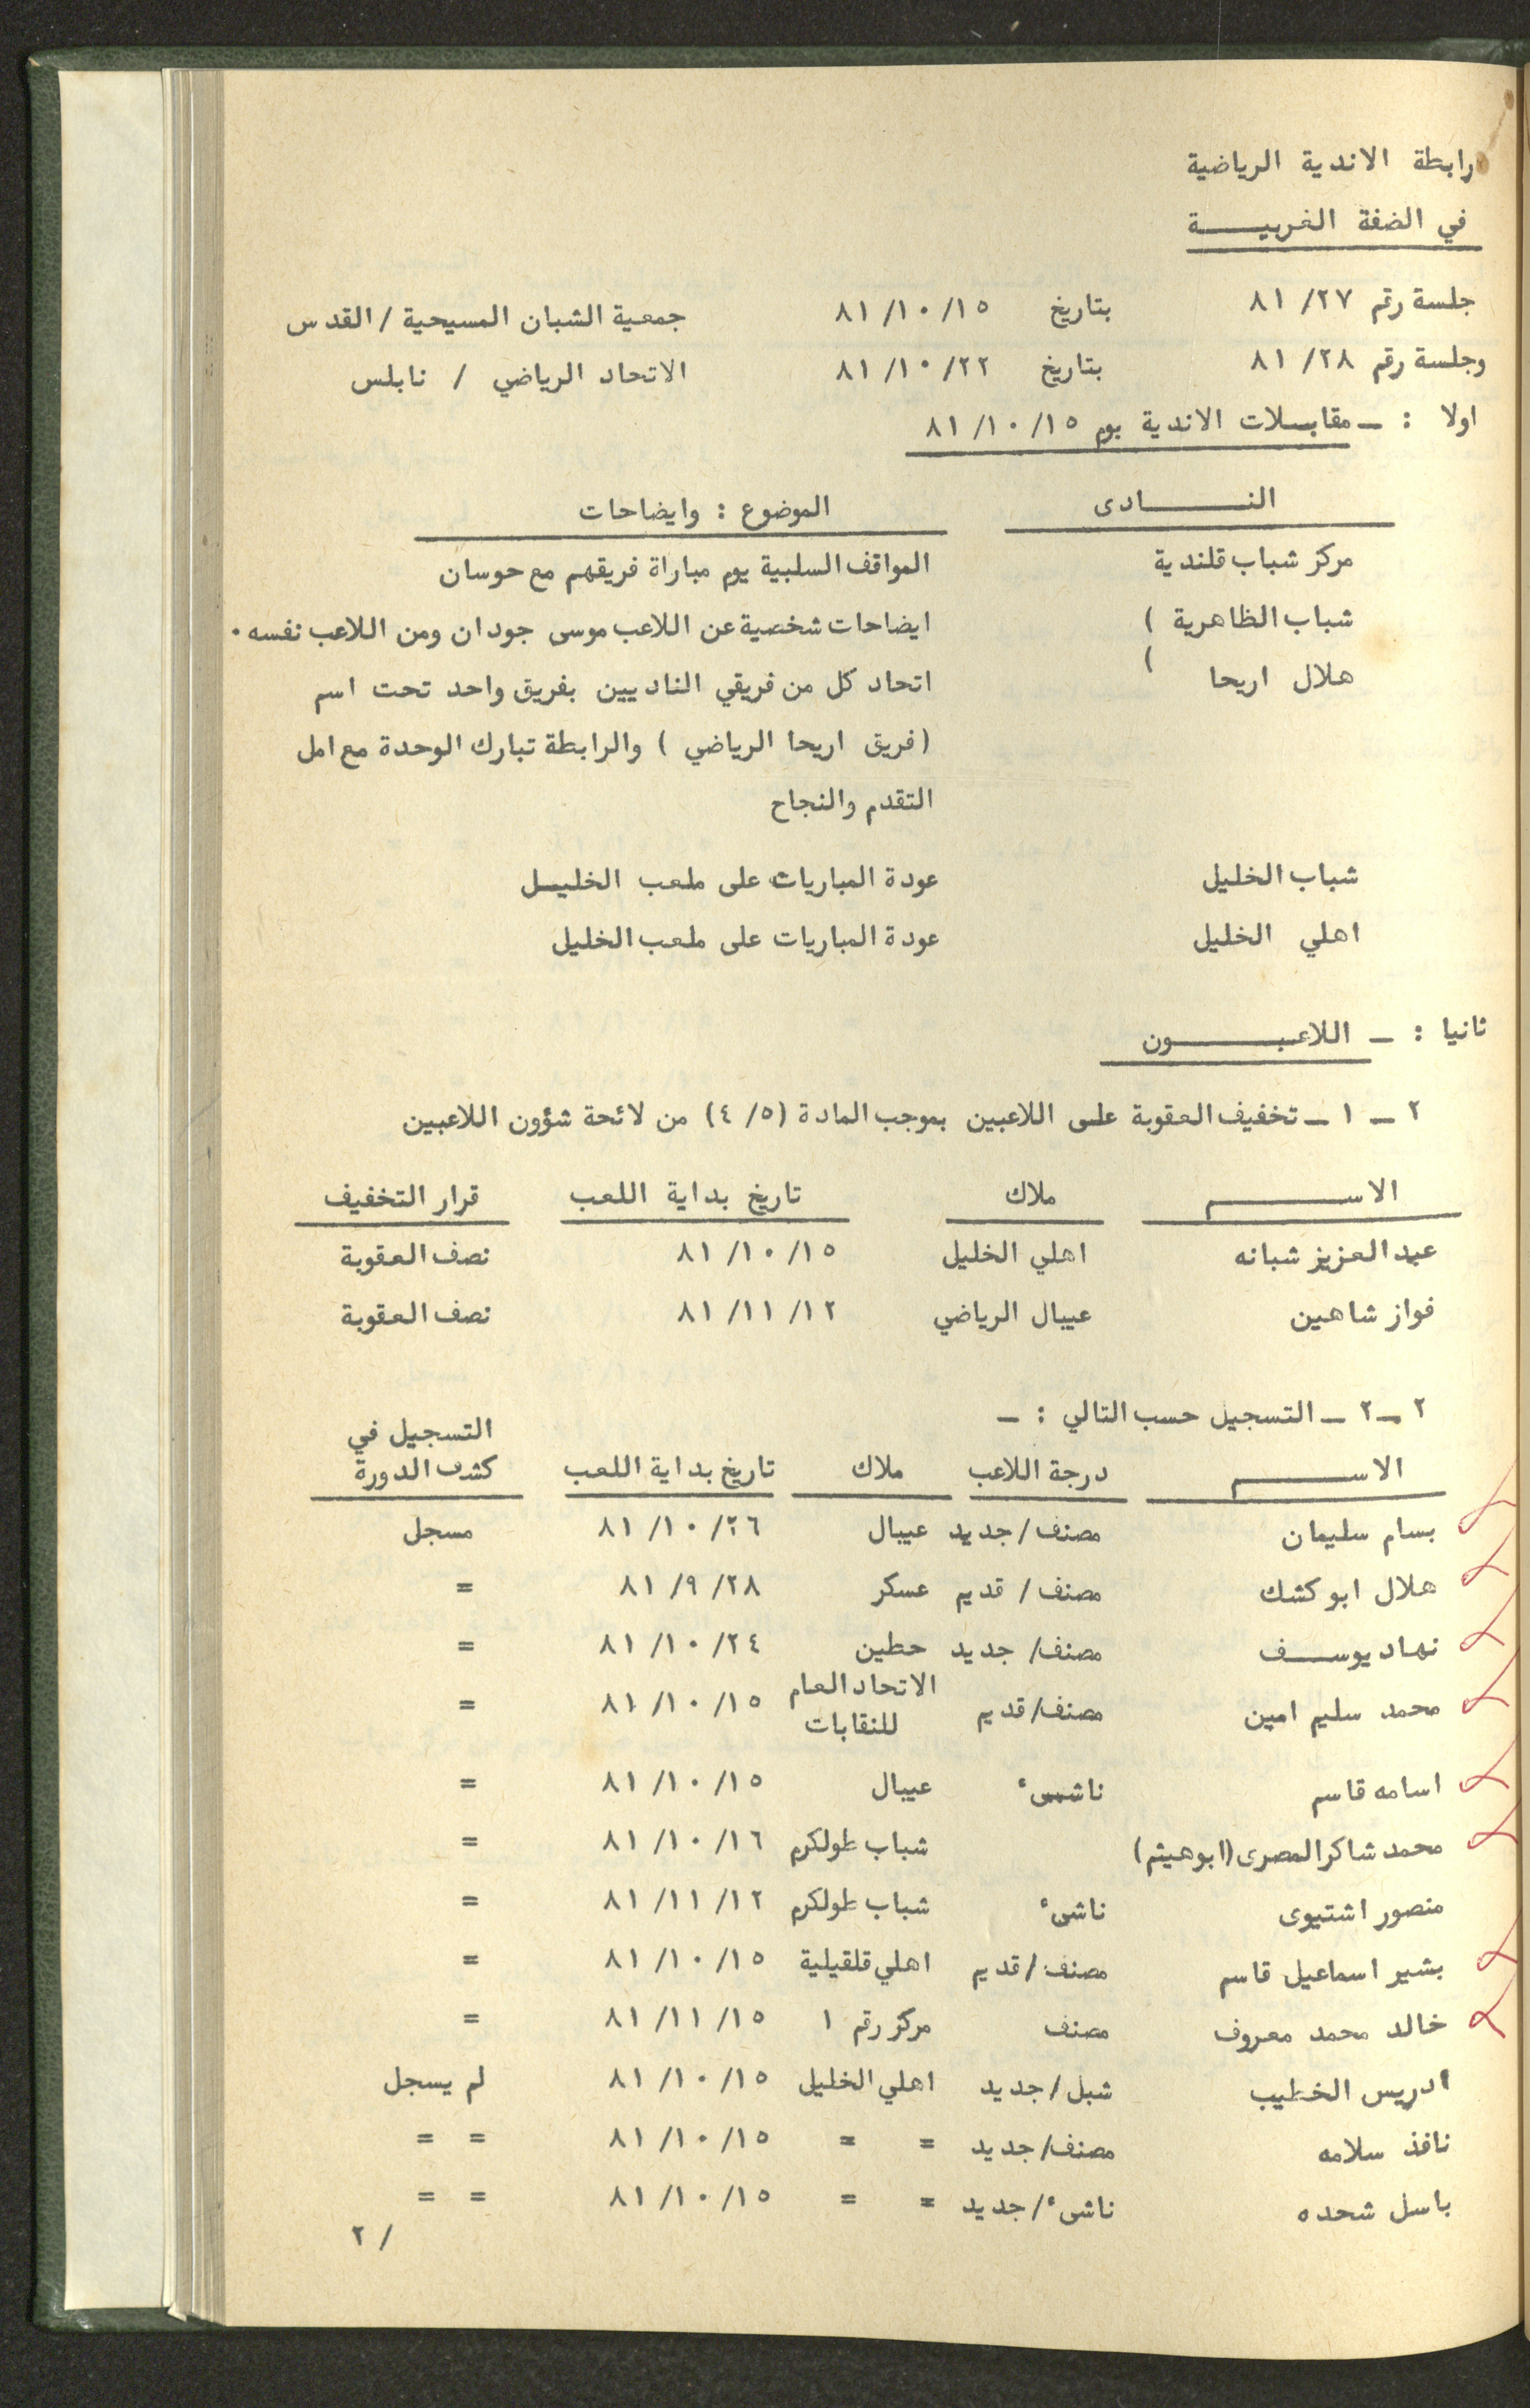 رابطة الاندية الرياضية
في الضفة الغربيـــــة
جلسة رقم ٢٧/ ٨١ بتاريخ ١٥/ ١٠/ ٨١ جمعية الشبان المسيحية / القدس
وجلسة رقم ٢٨/ ٨١ بتاريخ ٢٢/ ١٠/ ٨١ الاتحاد الرياضي / نابلس
اولا : ــ مقابـلات الاندية يوم ١٥/ ١٠/ ٨١
النـــــــادى الموضوع : وايضاحات
مركز شباب قلندية المواقف السلبية يوم مباراة فريقهم مع حوسان
شباب الظاهرية ) ايضاحات شخصية عن اللاعب موسى جودان ومن اللاعب نفسه ٠
هلال اريحا ) اتحاد كل من فريقي الناديين بفريق واحد تحت اسم
(فريق اريحا الرياضي ) والرابطة تبارك الوحدة مع امل
التقدم والنجاح
شباب الخليل عودة المباريات على ملعب الخليـل
اهلي الخليل عودة المباريات على ملعب الخليل
ثانيا : ــ اللاعبـــــــون
٢ ــ ١ ــ تخفيف العقوبة على اللاعبين بموجب المادة (٥/ ٤) من لائحة شؤون اللاعبين
الاســـــــم ملاك تاريخ بداية اللعب قرار التخفيف
عبد العزيز شبانه اهلي الخليل ١٥/ ١٠/ ٨١ نصف العقوبة
فواز شاهين عيبال الرياضي ١٢/ ١١/ ٨١ نصف العقوبة
٢ ــ ٢ ــ التسجيل حسب التالي : ــ
التسجيل في
الاســـــــم درجة اللاعب ملاك تاريخ بداية اللعب كشف الدورة
بسام سليمان مصنف/ جديد عيبال ٢٦/ ١٠/ ٨١ مسجل
هلال ابو كشك مصنف/ قديم عسكر ٢٨/ ٩/ ٨١ =
نهاد يوســـف مصنف/ جديد حطين ٢٤/ ١٠/ ٨١ =
محمد سليم امين مصنف/ قديم الاتحاد العام ١٥/ ١٠/ ٨١ =
للنقابات
اسامه قاسم ناشـىء عيبال ١٥/ ١٠/ ٨١ =
محمد شاكر المصرى (ابو هيثم) شباب طولكرم ١٦/ ١٠/ ٨١ =
منصور اشتيوى ناشىء شباب طولكرم ١٢/ ١١/ ٨١ =
بشير اسماعيل قاسم مصنف/ قديم اهلي قلقيلية ١٥/ ١٠/ ٨١ =
خالد محمد معروف مصنف مركز رقم ١ ١٥/ ١١/ ٨١ =
ادريس الخطيب شبل/ جديد اهلي الخليل ١٥/ ١٠/ ٨١ لم يسجل
نافذ سلامه مصنف/ جديد = = ١٥/ ١٠/ ٨١ = =
باسل شحده ناشىء/ جديد = = ١٥/ ١٠/ ٨١ = =
/ ٢